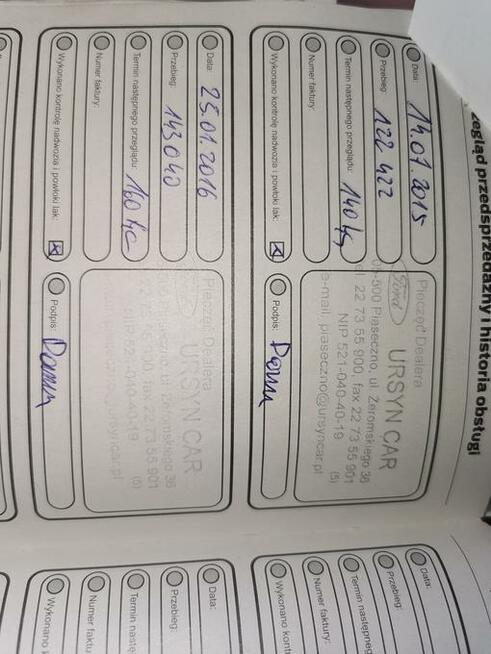 zegląd przedsprzedażny i historia obsługi
Data: 14.07.2015
Przebieg: 122 422
Termin następnego przeglądu: 140
Numer faktury:
Wykonano kontrolę nadwozia i powłoki lak.:
Pieczęć Dealera
Ford URSYN CAR
05-500 Piaseczno, ul. Żeromskiego 36
tel. 22 73 55 900, fax 22 73 55 901
NIP 521-040-40-19 (5)
e-mail, piaseczno@ursyncar.pl
Podpis:
Data: 25.01.2016
Przebieg: 143 040
Termin następnego przeglądu: 160
Numer faktury:
Wykonano kontrolę nadwozia i powłoki lak.:
Pieczęć Dealera
URSYN CAR
Żeromskiego 36
fax 22 73 55 901
NIP 521-040-40-19 (5)
Podpis:
Data:
Przebieg:
Termin następneg
Numer faktu
Wykonano kont
Data:
Przebieg:
Termin nast
Numer faktu
Wykonano k